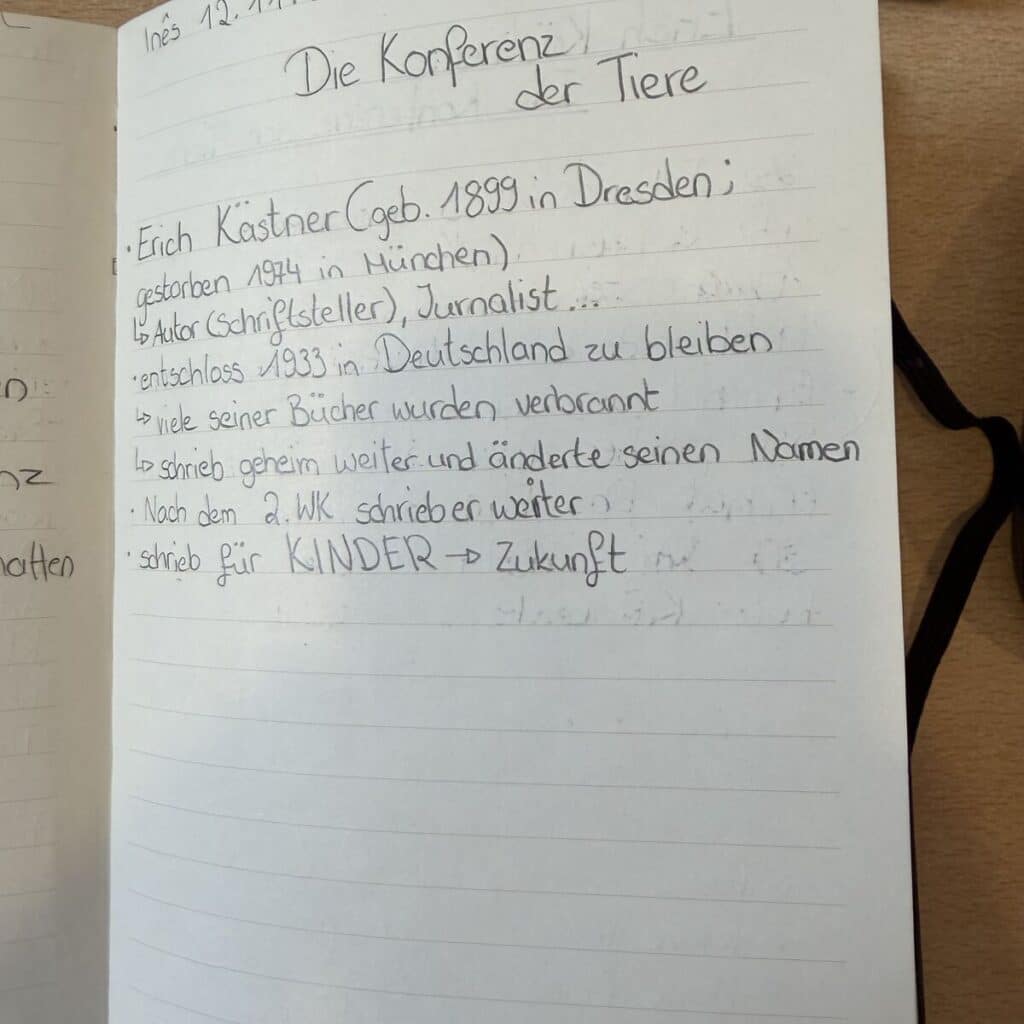 Inês 12.11.
Die Konferenz
der Tiere
· Erich Kästner (geb. 1899 in Dresden;
gestorben 1974 in München)
↳ Autor (Schriftsteller), Jurnalist...
· entschloss 1933 in Deutschland zu bleiben
↳ viele seiner Bücher wurden verbrannt
↳ schrieb geheim weiter und änderte seinen Namen
· Nach dem 2. WK schrieb er weiter
· schrieb für KINDER → Zukunft